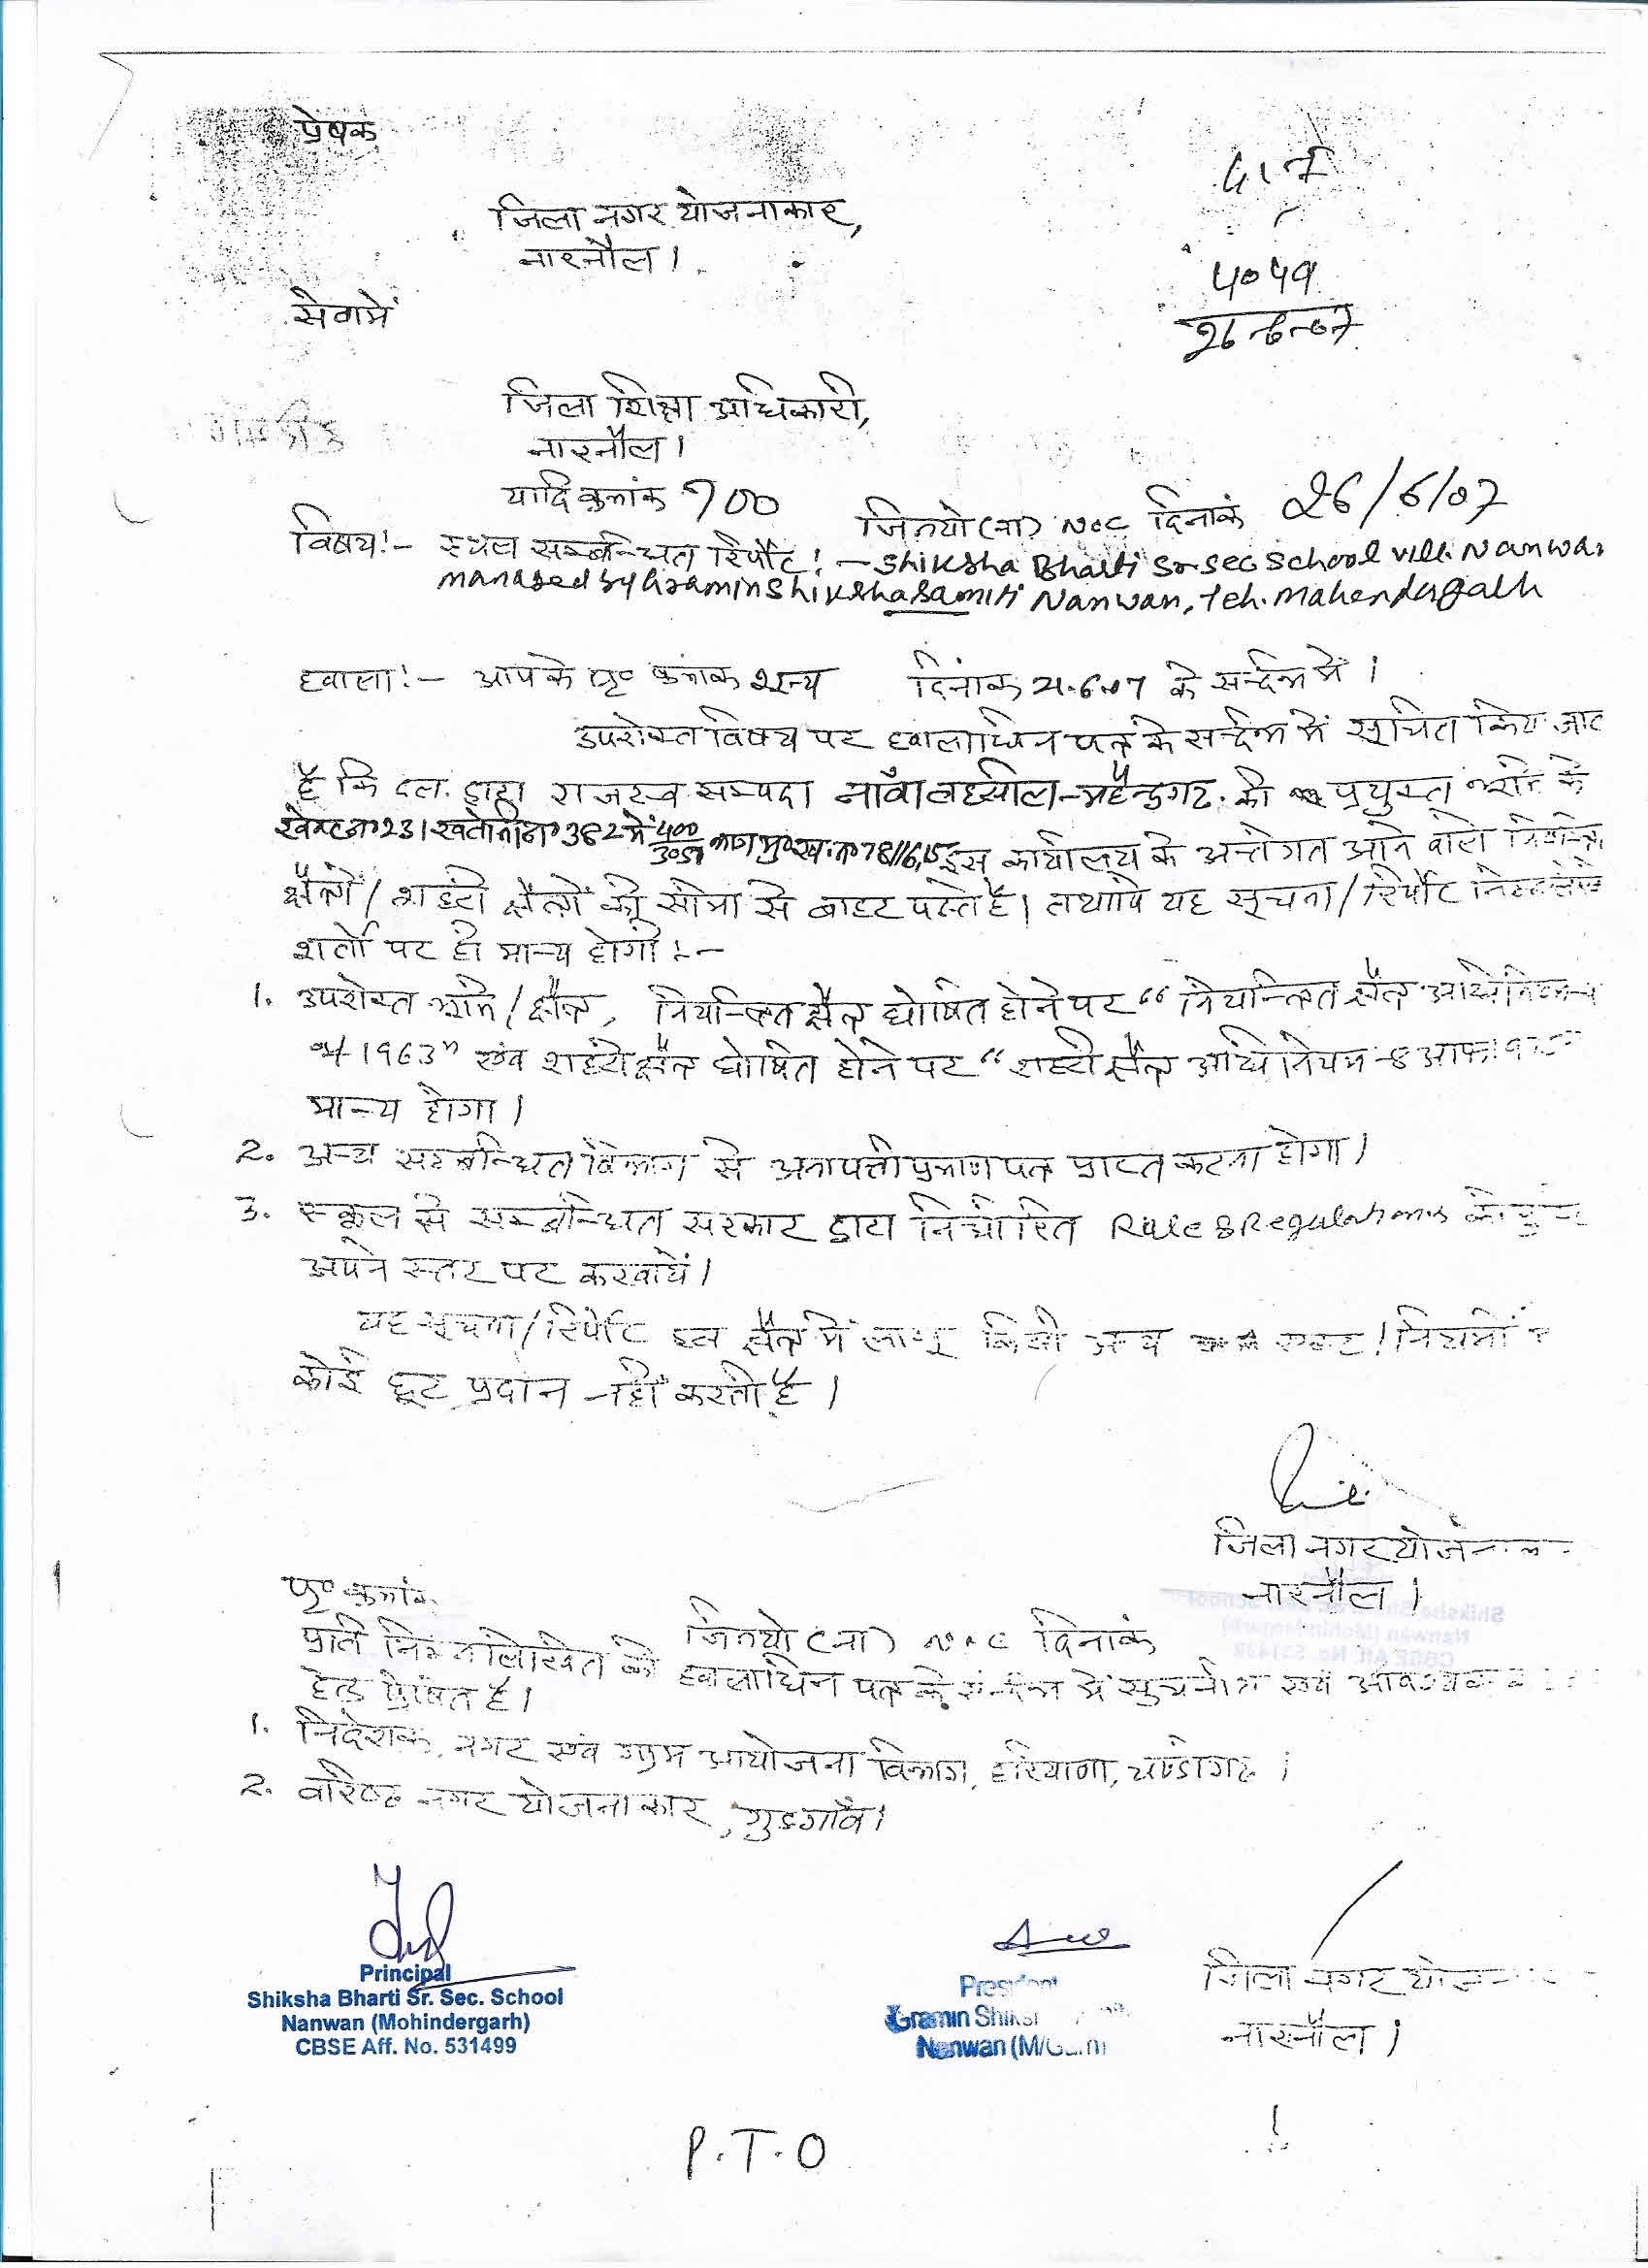 प्रेषक
जिला नगर योजनाकार,
नारनौल।
4059
26-6-07
सेवामें
जिला शिक्षा अधिकारी,
नारनौल।
यादि क्रमांक 700 जिनयो(ना) NOC दिनांक 26/6/07
विषय:- स्थल सम्बन्धित रिर्पोट:- Shiksha Bharti Sr Sec School Vill. Nanwan
managed by Gramin Shiksha Samiti Nanwan, Teh. Mahendergarh
हवाला:- आपके पृ० क्रमांक शून्य दिनांक 21.6.07 के सर्न्दभ में।
उपरोक्त विषय पर हवालाधिन पत्र के सर्न्दभ में सूचित किया जाता
है कि द्वारा राजस्व सम्पदा नाँवा तहसील-महेन्द्रगढ. की प्रयुक्त भूमि के
खेवट न० 231 खतोनी न० 382 में 400 भाग मु० ख. न० 78//6,15 इस कार्यालय के अर्न्तगत आने वाले नियन्त्रित
क्षैत्रों/शहरी क्षैत्रों की सीमा से बाहर पडते है। तथापि यह सूचना/रिर्पोट निम्नलिखित
शर्तो पर ही मान्य होगी:-
1. उपरोक्त भूमि/क्षैत्र, नियन्त्रित क्षैत्र घोषित होने पर “नियन्त्रित क्षैत्र अधिनियम
ऑफ 1963” एंव शहरी क्षैत्र घोषित होने पर “शहरी क्षैत्र अधिनियम-8 आफ
मान्य होगा।
2. अन्य सम्बन्धित विभाग से अनापत्ती प्रमाण पत्र प्राप्त करना होगा।
3. स्कूल से सम्बन्धित सरकार द्वारा निर्धारित Rule & Regulations की
अपने स्तर पर करवायें।
यह सूचना/रिर्पोट इस क्षैत्र में लागू किसी अन्य एक्ट/नियमों
कोई छूट प्रदान नहीं करती है।
जिला नगर योजनाकार
नारनौल।
पृ० क्रमांक जिनयो(ना) NOC दिनांक
प्रति निम्नलिखित को हवालाधिन पत्र के सर्न्दभ में सुचनार्थ एवं आवश्यक
हेतु प्रेषित है।
1. निदेशक, नगर एंव ग्राम आयोजना विभाग, हरियाणा, चण्डीगढ।
2. वरिष्ठ नगर योजनाकार, गुडगाँव।
Principal
Shiksha Bharti Sr. Sec. School
Nanwan (Mohindergarh)
CBSE Aff. No. 531499
President
Gramin Shiksha
Nanwan (M/Garh)
जिला नगर योजनाकार
नारनौल।
P.T.O